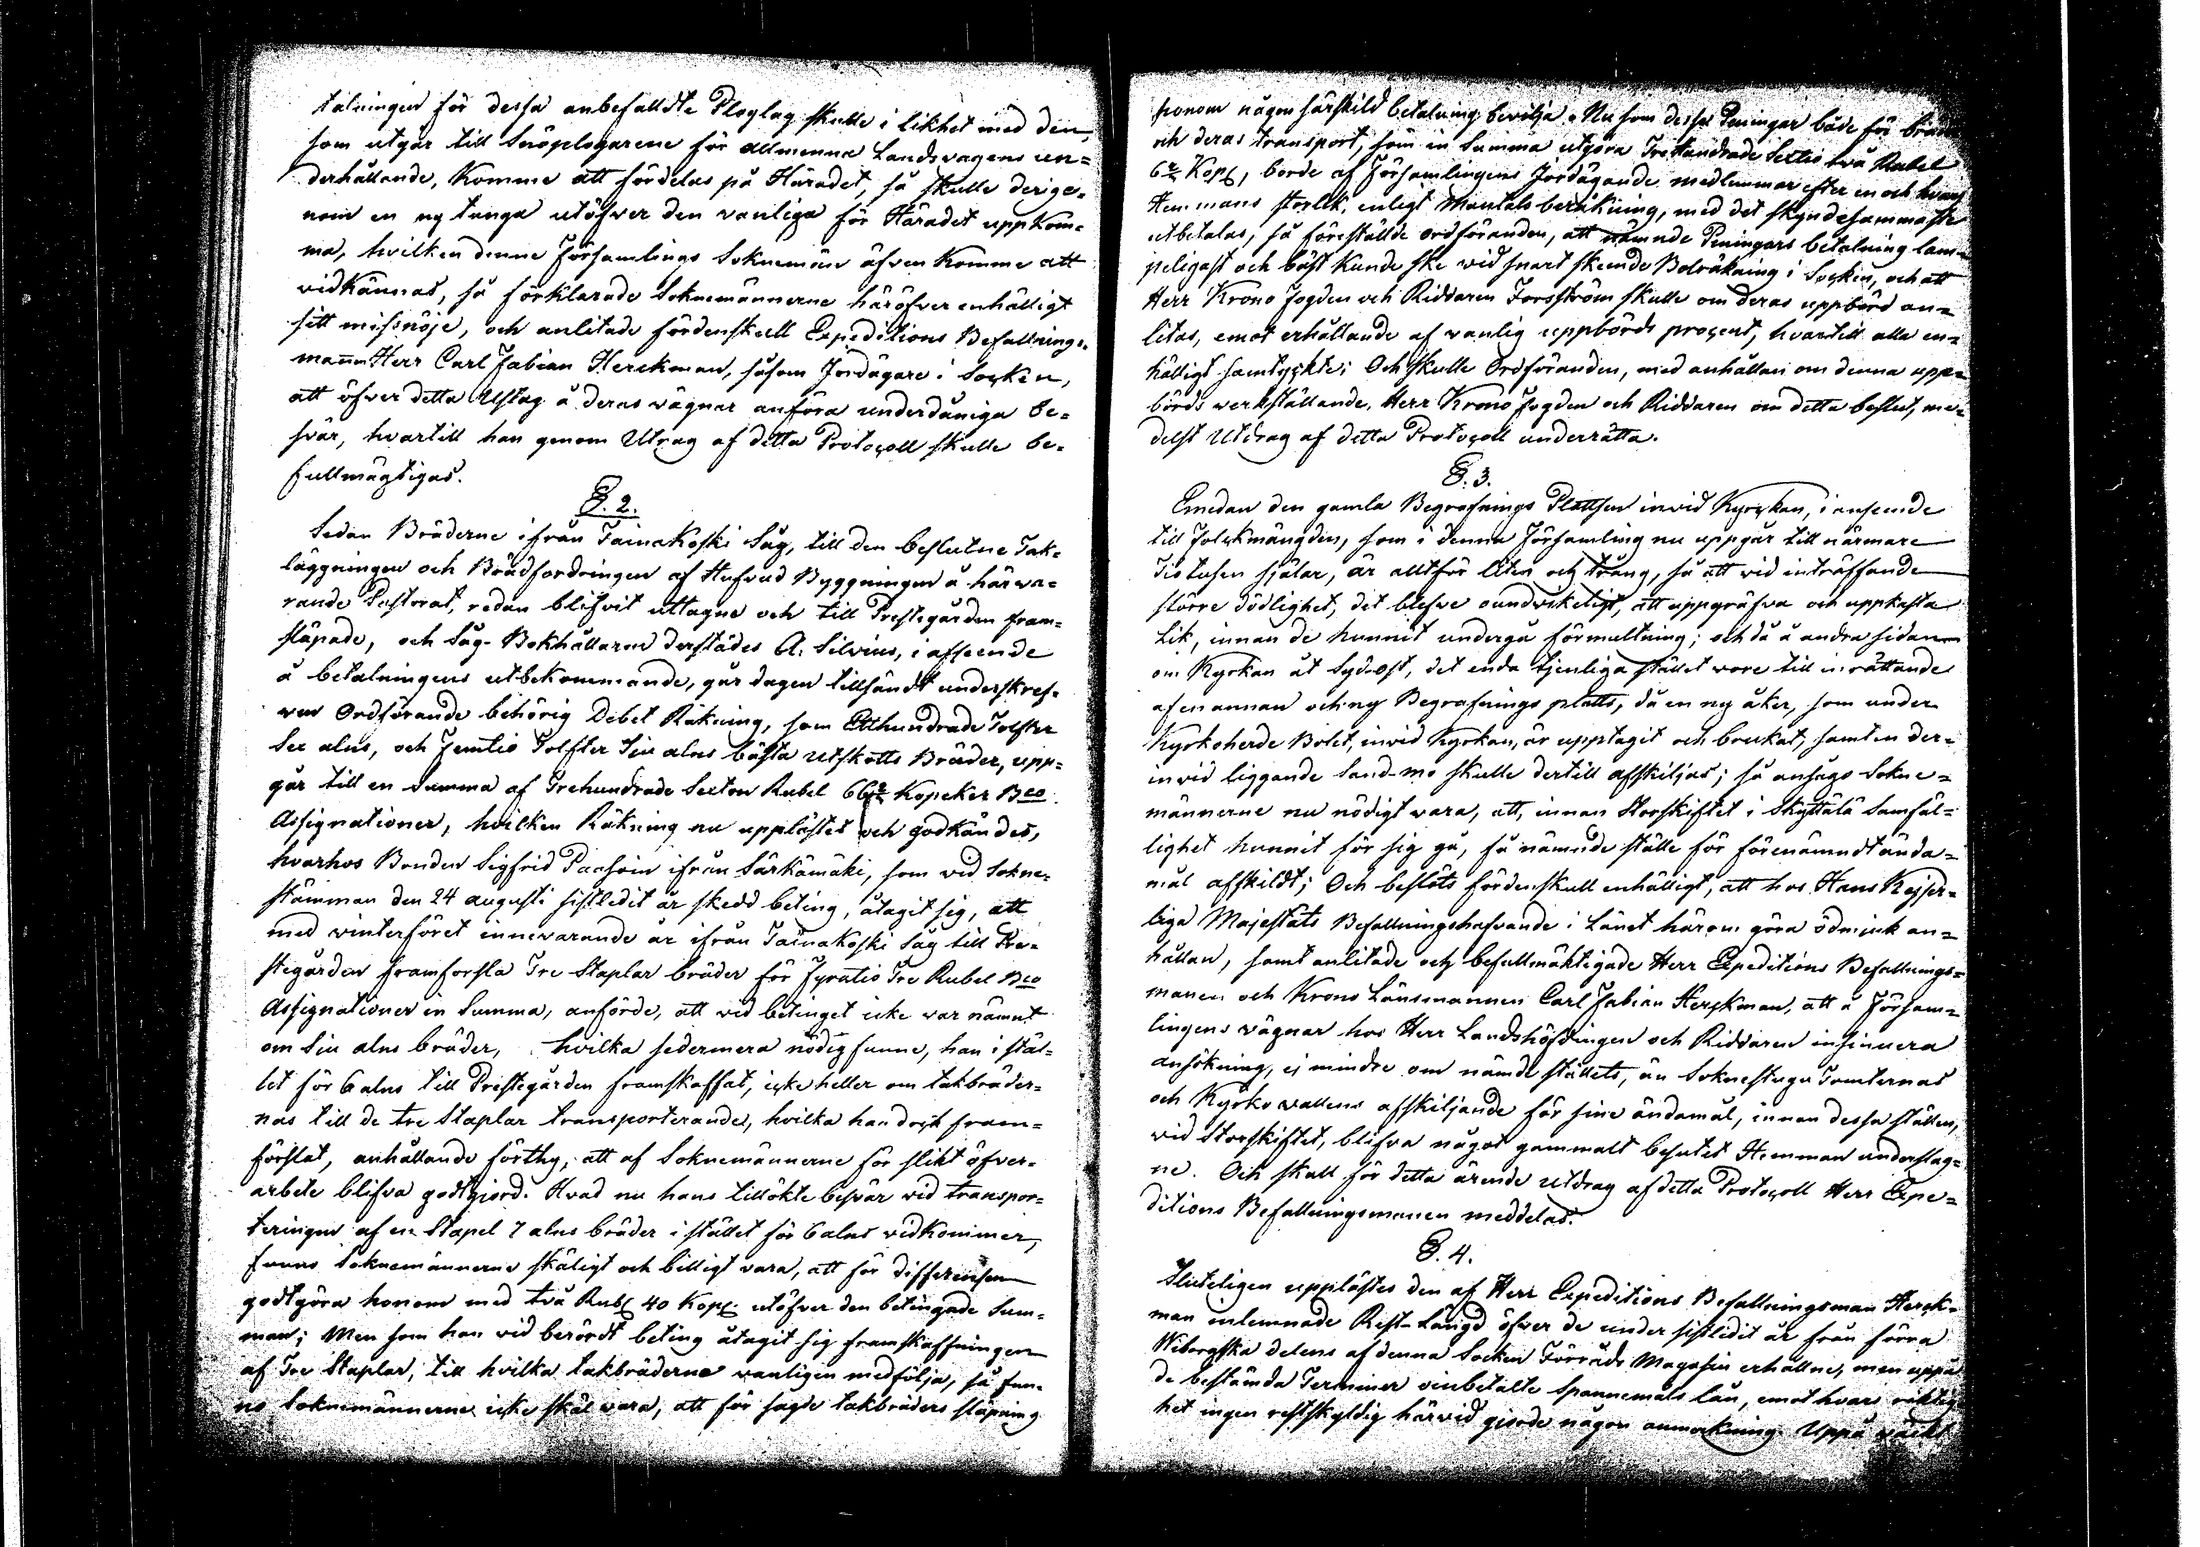 talningen för dessa anbefalldte Ploglag skulle i likhet med den,
som utgår till Snöplogarene för allmenna Landsvägens un=
derhållande, komme att fördelas på Häradet, så skulle derige=
nom en ny tunga utöfver den vanliga för Häradet uppkom=
ma, hvilken denne Församlings Soknemän äfven komme att
vidkännas, så förklarade Soknemännerne häröfver enhälligt
sitt missnöje, och anlitade fördenskull Expeditions Befallnings=
mann Herr Carl Fabian Herckman, såsom Jordägare i Socken,
att öfver detta Uslag å deras vägnar anföra underdåniga be=
svär, hvartill han genom Utrag af detta Protocoll skulle be=
fullmägtigas.
§. 2.
Sedan Bräderne ifrån Tainakoski Såg, till den beslutne Tak=
läggningen och Brädfordringen af Hufvud Byggningen å härva=
rande Pastorat, redan blifvit uttagne och till Prestegården fram=
släpade, och Såg-Bokhållaren derstädes A. Silvius, i afseende
å betalningens utbekommande, går dagen tillsändt underskref=
ven Ordförande behörig Debet Räkning, som Etthundrade Tolfter
Sex alns, och Femtio Tolfter Siu alns bästa utskotts Bräder, upp=
går till en Summa af Trehundrade Sexton Rubel 66 2/7 Kopeker Bco
Assignationer, hvilken Räkning nu upplästes och godkändes,
hvarhos Bonden Sigfrid Paasoin ifrån Särkämäki, som vid Sokne=
stämman den 24 augusti sistledit år skedd beting, åtagit sig, att
med vinterföret innevarande år ifrån Tainakoski Såg till Pre=
stegården framforsla Tre Staplar bräder för Fyratio Tre Rubel Bco
Assignationer en Summa, anförde, att vid betinget icke var nämnt
om Siu alns bräder, hvilka sedermera nödig funne, han i stäl=
let för 6 alns till Prestegården framskaffat, icke heller om takbräder=
nas till de tre Staplar transporterande, hvilka han dock fram=
förslat, anhållande förthy, att af Soknemännerne för slikt öfver=
arbete blifva godtgjord. Hvad nu hans tillökte besvär vid transpor=
teringen af en Stapel 7 alns bräder i stället för 6 alns vidkommer,
funno Soknemännerne skäligt och billigt vara, att för differensen
godtgöra honom med två Rubl 40 Kop. utöfver den betingade Sum=
man; Men som han vid berördt beting åtagit sig framskaffningen
af Tre Staplar, till hvilka takbräderne vanligen medfölja, så fun=
no Soknemännerne icke skäl vara, att för sagde takbräders släpning
honom någon särskild betalning bevilja. Nu som dessa Peningar både för bräder
och deras transport, som en Summa utgöra Trehundrade Sextio två Rubel
6 2/7 Kop, borde af Församlingens Jordägande medlemmar efter en och hvars
Hemmans storlek, enligt Mantals beräkning, med det skyndesammaste
utbetalas, så föreställde ordföranden, att nämnde Peningars betalning läm=
peligast och bäst kunde ske vid snart skeende Bolräkning i Socken, och att
Herr Krono Fogden och Riddaren Forsström skulle om deras uppbörd an=
litas, emot erhållande af vanlig uppbörds procent, hvartill alla en=
hälligt samtyckte; Och skulle Ordföranden, med anhållan om denna upp=
börds verkställande, Herr Krono Fogden och Riddaren om detta beslut, me=
delst Utdrag af detta Protocoll underrätta.
§. 3.
Emedan den gamla Begrafnings Plattsen invid Kyrckan, i anseende
till Folckmängden, som i denna Församling nu uppgår till närmare
Tio tusen själar, är alltför liten och trång, så att vid inträffande
större dödlighet, det blefve oundvikeligt, att uppgräfva och uppkasta
Lik, innan de hunnit undergå förmultning; och då å andra sidan
om Kyrkan åt Syd-ost, det enda tjenliga stället vore till inrättande
af en annan och ny Begrafnings platts, då en ny åker, som under
Kyrkoherde Bolet, invid Kyrkan, är upptagit och brukat, samt en der=
invid liggande Sand-mo skulle dertill afskiljas; så ansågo Sokne=
männerne nu nödigt vara, att, innan Storskiftet i Skyttälä Samfäl=
lighet hunnit för sig gå, få nämnde ställe för förenämndt ända=
mål afskildt; Och beslöts fördenskull enhälligt, att hos Hans Kejser=
liga Majestäts Befallningshafvande i Länet härom göra ödmjuk an=
hållan, samt anlitade och befullmäktigade Herr Expeditions Befallnings=
manen och Krono Länsmannen Carl Fabian Herckman, att å Försam=
lingens vägnar hos Herr Landshöfdingen och Riddaren insinuera
ansökning, ej mindre om nämde ställets, än Soknestugu Tomternas
och Kyrko vallens afskiljande för sine ändamål, innan dessa ställen,
vid Storskiftet, blifva något gammalt besutet Hemman underslag=
ne. Och skall för detta ärende utdrag af detta Protocoll Herr Expe=
ditions Befallningsmanen meddelas.
§. 4.
Sluteligen upplästes den af Herr Expeditions Befallningsman Herck=
man inlemnade Rest-Längd öfver de under sistledit år från förra
Wiborgska delens af denna Socken Förråds Magasin erhållne, men uppå
de bestämda Terminer oinbetalte Spannemåls lån, emot hvars riktig
het ingen restskyldig härvid gjorde någon anmerkning. Uppå väckt